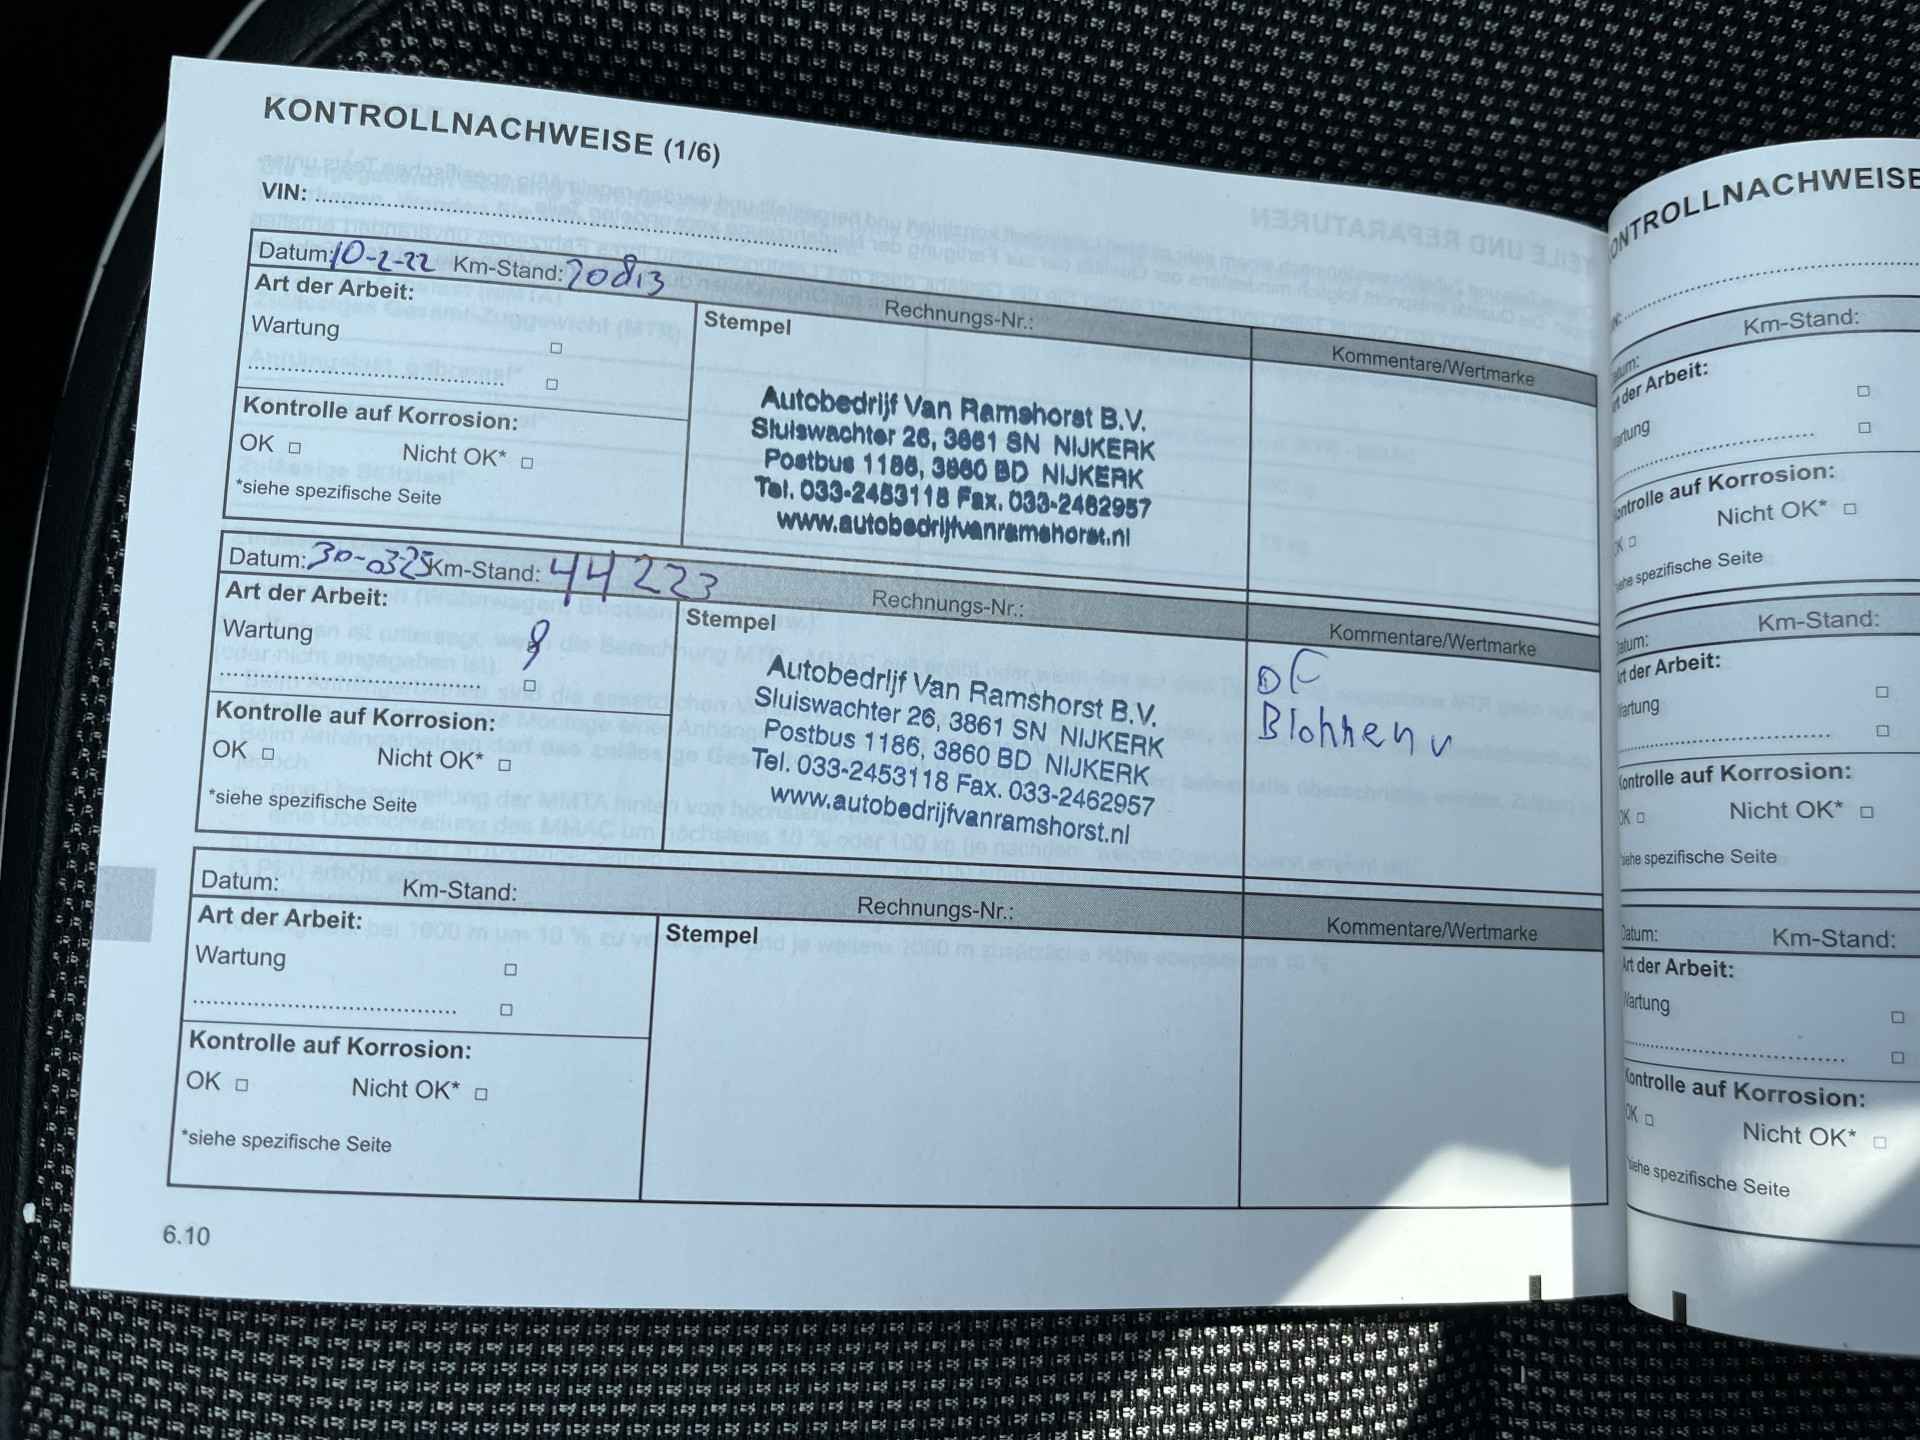 KONTROLLNACHWEISE (1/6)
VIN:
Datum: 10-2-22 Km-Stand: 20813 Rechnungs-Nr.:
Art der Arbeit:
Stempel
Kommentare/Wertmarke
Wartung
Kontrolle auf Korrosion:
OK Nicht OK*
*siehe spezifische Seite
Autobedrijf Van Ramshorst B.V.
Sluiswachter 26, 3861 SN NIJKERK
Postbus 1186, 3860 BD NIJKERK
Tel. 033-2453118 Fax. 033-2462957
www.autobedrijfvanramshorst.nl
Datum: 30-0325 Km-Stand: 44223 Rechnungs-Nr.:
Art der Arbeit:
Stempel
Kommentare/Wertmarke
Wartung
Kontrolle auf Korrosion:
OK Nicht OK*
*siehe spezifische Seite
Autobedrijf Van Ramshorst B.V.
Sluiswachter 26, 3861 SN NIJKERK
Postbus 1186, 3860 BD NIJKERK
Tel. 033-2453118 Fax. 033-2462957
www.autobedrijfvanramshorst.nl
Datum: Km-Stand: Rechnungs-Nr.:
Art der Arbeit:
Stempel
Kommentare/Wertmarke
Wartung
Kontrolle auf Korrosion:
OK Nicht OK*
*siehe spezifische Seite
6.10
ONTROLLNACHWEISE
Km-Stand:
der Arbeit:
Nicht OK*
spezifische Seite
Datum: Km-Stand:
Art der Arbeit:
Wartung
Kontrolle auf Korrosion:
OK Nicht OK*
siehe spezifische Seite
Datum: Km-Stand:
Art der Arbeit:
Wartung
Kontrolle auf Korrosion:
OK Nicht OK*
siehe spezifische Seite